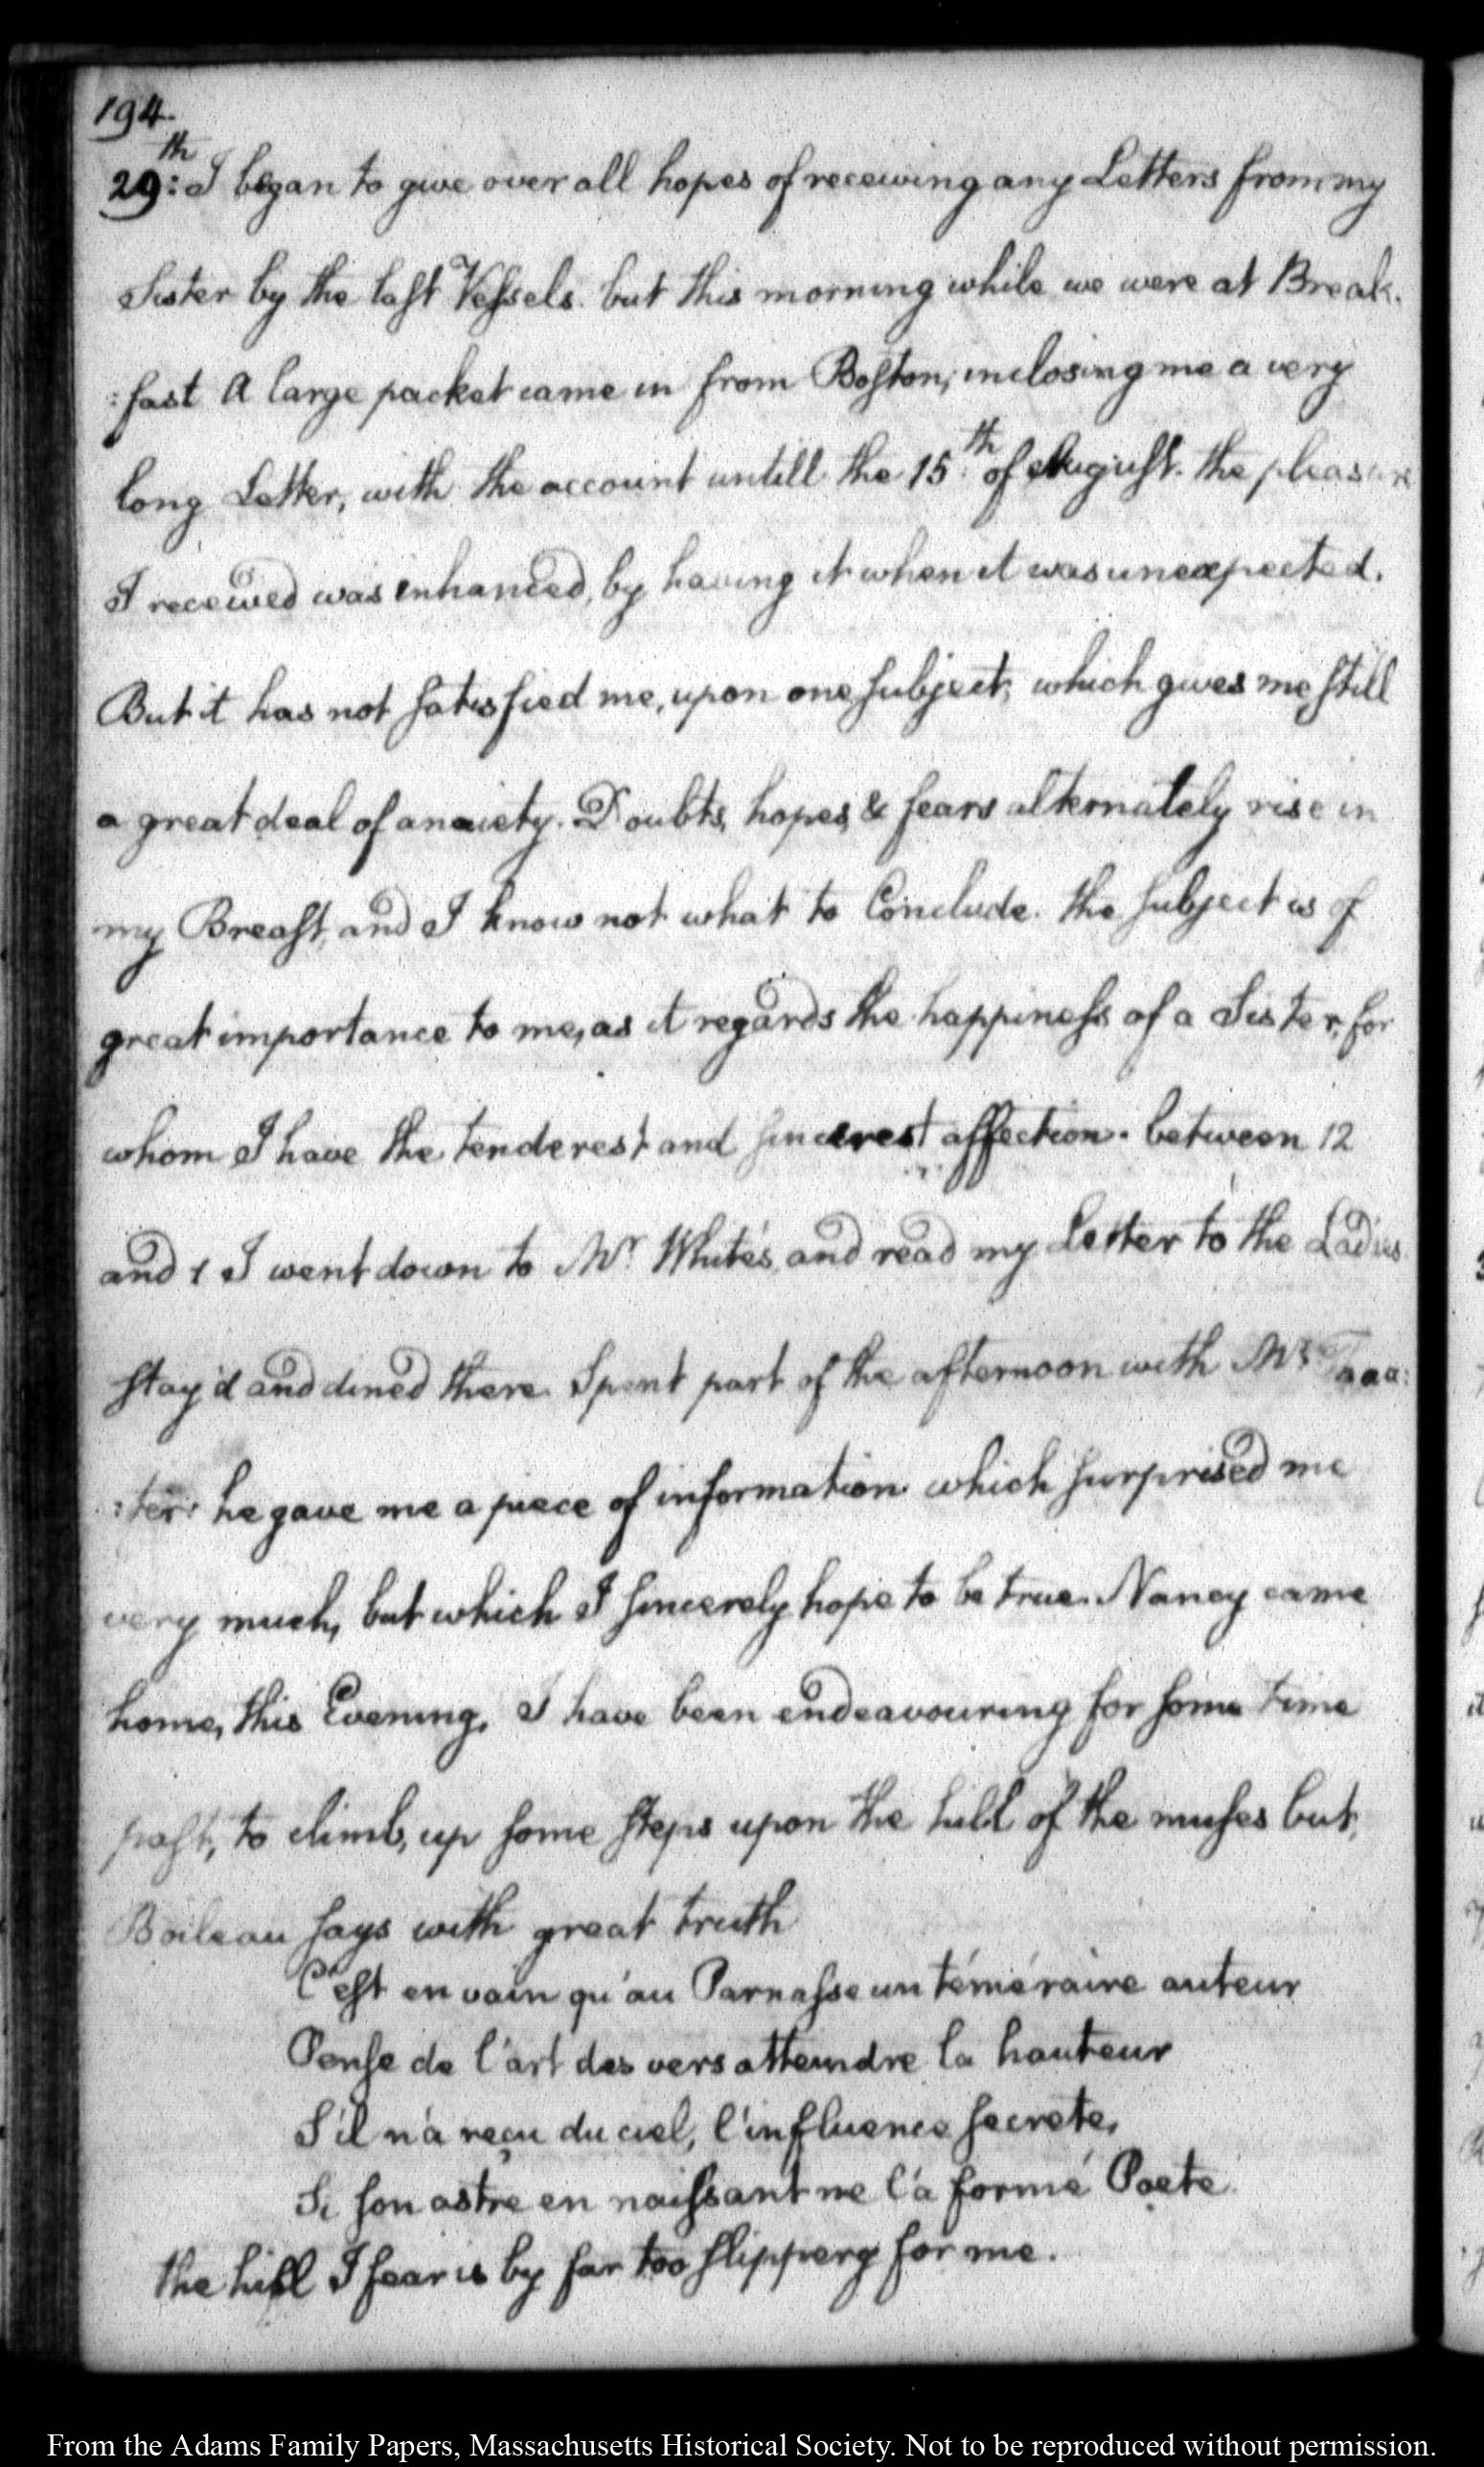 194
29:th I began to give over all hopes of receiving any Letters from my
Sister by the last Vessels. but this morning while we were at Break:
:fast A large packet came in from Boston, inclosing me a very
long Letter, with the account untill the 15th of August. the pleasure
I received was enhanced, by having it when it was unexpected.
But it has not satisfied me, upon one subject, which gives me still
a great deal of anxiety. Doubts, hopes, & fears alternately rise in
my Breast, and I know not what to Conclude. the subject is of
great importance to me, as it regards the happiness of a Sister, for
whom I have the tenderest and sincerest affection. between 12
and 1 I went down to Mr. White's, and read my Letter to the Ladies.
stay'd and dined there. Spent part of the afternoon with Mr
:ter: he gave me a piece of information which surprised me
very much, but which I sincerely hope to be true. Nancy came
home, this Evening. I have been endeavouring for some time
past, to climb, up some steps upon the hill of the muses but,
Boileau says with great truth
C'est en vain qu'au Parnasse un téméraire auteur
Pense de l'art des vers atteindre la hauteur
S'il n'a reçu du ciel, l'influence secrete,
Si son astre en naissant ne l'a formé Poete.
the hill I fear is by far too slippery for me.
From the Adams Family Papers, Massachusetts Historical Society. Not to be reproduced without permission.